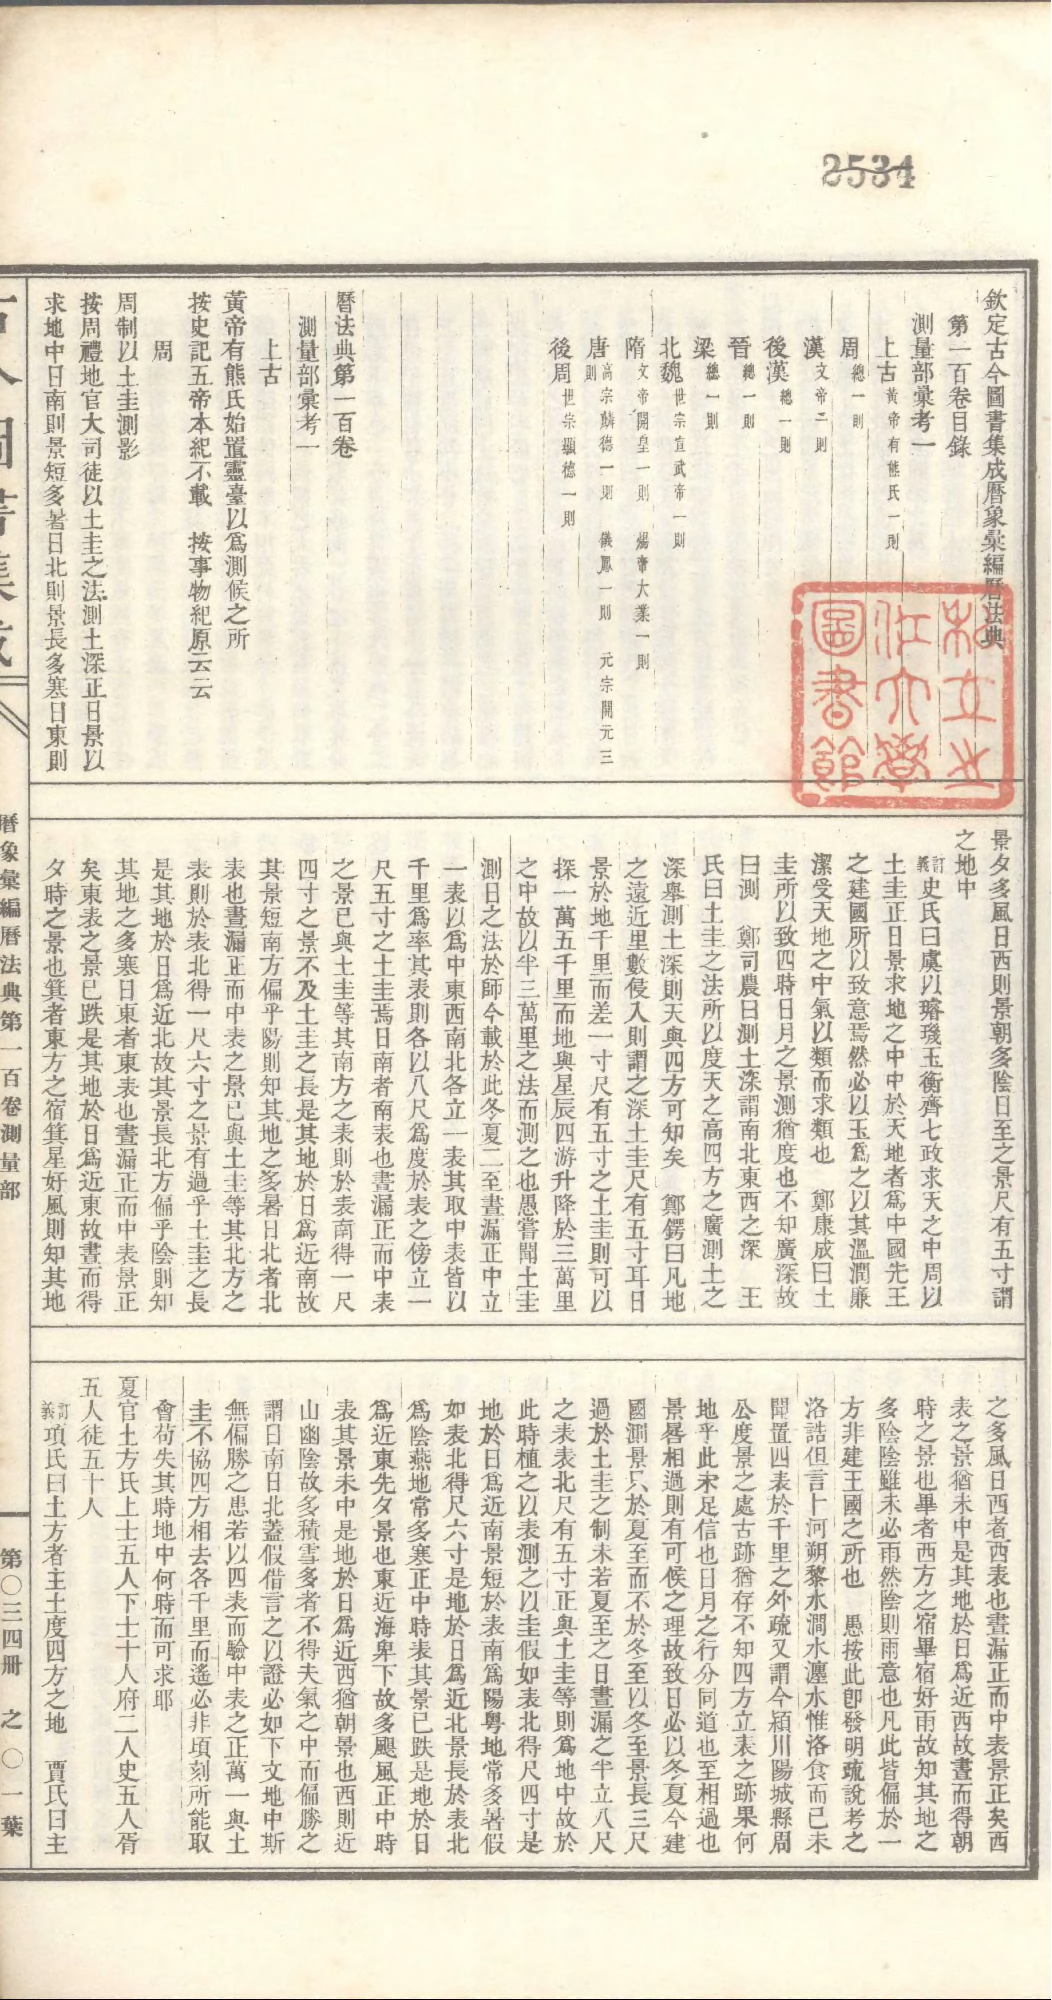 2534
欽定古今圖書集成曆象彙編曆法典
第一百卷目錄
測量部彙考一
上古黃帝有熊氏一則
周總一則
漢文帝二則
後漢總一則
晉總一則
梁總一則
北魏世宗宣武帝一則
隋文帝開皇一則 煬帝大業一則
唐高宗麟德一則 儀鳳一則 元宗開元三則
後周世宗顯德一則
曆法典第一百卷
測量部彙考一
上古
黃帝有熊氏始置靈臺以爲測候之所
按史記五帝本紀不載 按事物紀原云云
周
周制以土圭測影
按周禮地官大司徒以土圭之法測土深正日景以
求地中日南則景短多暑日北則景長多寒日東則
景夕多風日西則景朝多陰日至之景尺有五寸謂
之地中
訂義史氏曰虞以璿璣玉衡齊七政求天之中周以
土圭正日景求地之中中於天地者爲中國先王
之建國所以致意焉然必以玉爲之以其溫潤廉
潔受天地之中氣以類而求類也 鄭康成曰土
圭所以致四時日月之景測猶度也不知廣深故
曰測 鄭司農曰測土深謂南北東西之深 王
氏曰土圭之法所以度天之高四方之廣測土之
深舉測土深則天與四方可知矣 鄭鍔曰凡地
之遠近里數侵入則謂之深土圭尺有五寸耳日
景於地千里而差一寸尺有五寸之土圭則可以
探一萬五千里而地與星辰四游升降於三萬里
之中故以半三萬里之法而測之也愚嘗聞土圭
測日之法於師今載於此冬夏二至晝漏正中立
一表以爲中東西南北各立一表其取中表皆以
千里爲率其表則各以八尺爲度於表之傍立一
尺五寸之土圭焉日南者南表也晝漏正而中表
之景已與土圭等其南方之表則於表南得一尺
四寸之景不及土圭之長是其地於日爲近南故
其景短南方偏乎陽則知其地之多暑日北者北
表也晝漏正而中表之景已與土圭等其北方之
表則於表北得一尺六寸之景有過乎土圭之長
是其地於日爲近北故其景長北方偏乎陰則知
其地之多寒日東者東表也晝漏正而中表景正
矣東表之景已跌是其地於日爲近東故晝而得
夕時之景也箕者東方之宿箕星好風則知其地
之多風日西者西表也晝漏正而中表景正矣西
表之景猶未中是其地於日爲近西故晝而得朝
時之景也畢者西方之宿畢宿好雨故知其地之
多陰陰雖未必雨然陰則雨意也凡此皆偏於一
方非建王國之所也 愚按此卽發明疏說考之
洛誥但言卜河朔黎水澗水瀍水惟洛食而已未
聞置四表於千里之外疏又謂今潁川陽城縣周
公度景之處古跡猶存不知四方立表之跡果何
地乎此宋足信也日月之行分同道也至相過也
景晷相過則有可候之理故致日必以冬夏今建
國測景只於夏至而不於冬至以冬至景長三尺
過於土圭之制未若夏至之日晝漏之半立八尺
之表表北尺有五寸正與土圭等則爲地中故於
此時植之以表測之以圭假如表北得尺四寸是
地於日爲近南景短於表南爲陽粵地常多暑假
如表北得尺六寸是地於日爲近北景長於表北
爲陰燕地常多寒正中時表其景已跌是地於日
爲近東先夕景也東近海卑下故多颶風正中時
表其景未中是地於日爲近西猶朝景也西則近
山幽陰故多積雪多者不得夫氣之中而偏勝之
謂日南日北蓋假借言之以證必如下文地中斯
無偏勝之患若以四表而驗中表之正萬一與土
圭不協四方相去各千里而遙必非頃刻所能取
會苟失其時地中何時而可求耶
夏官土方氏上士五人下士十人府二人史五人胥
五人徒五十人
訂義項氏曰土方者主土度四方之地 賈氏曰主
曆象彙編曆法典第一百卷測量部
第〇三四冊 之〇一葉